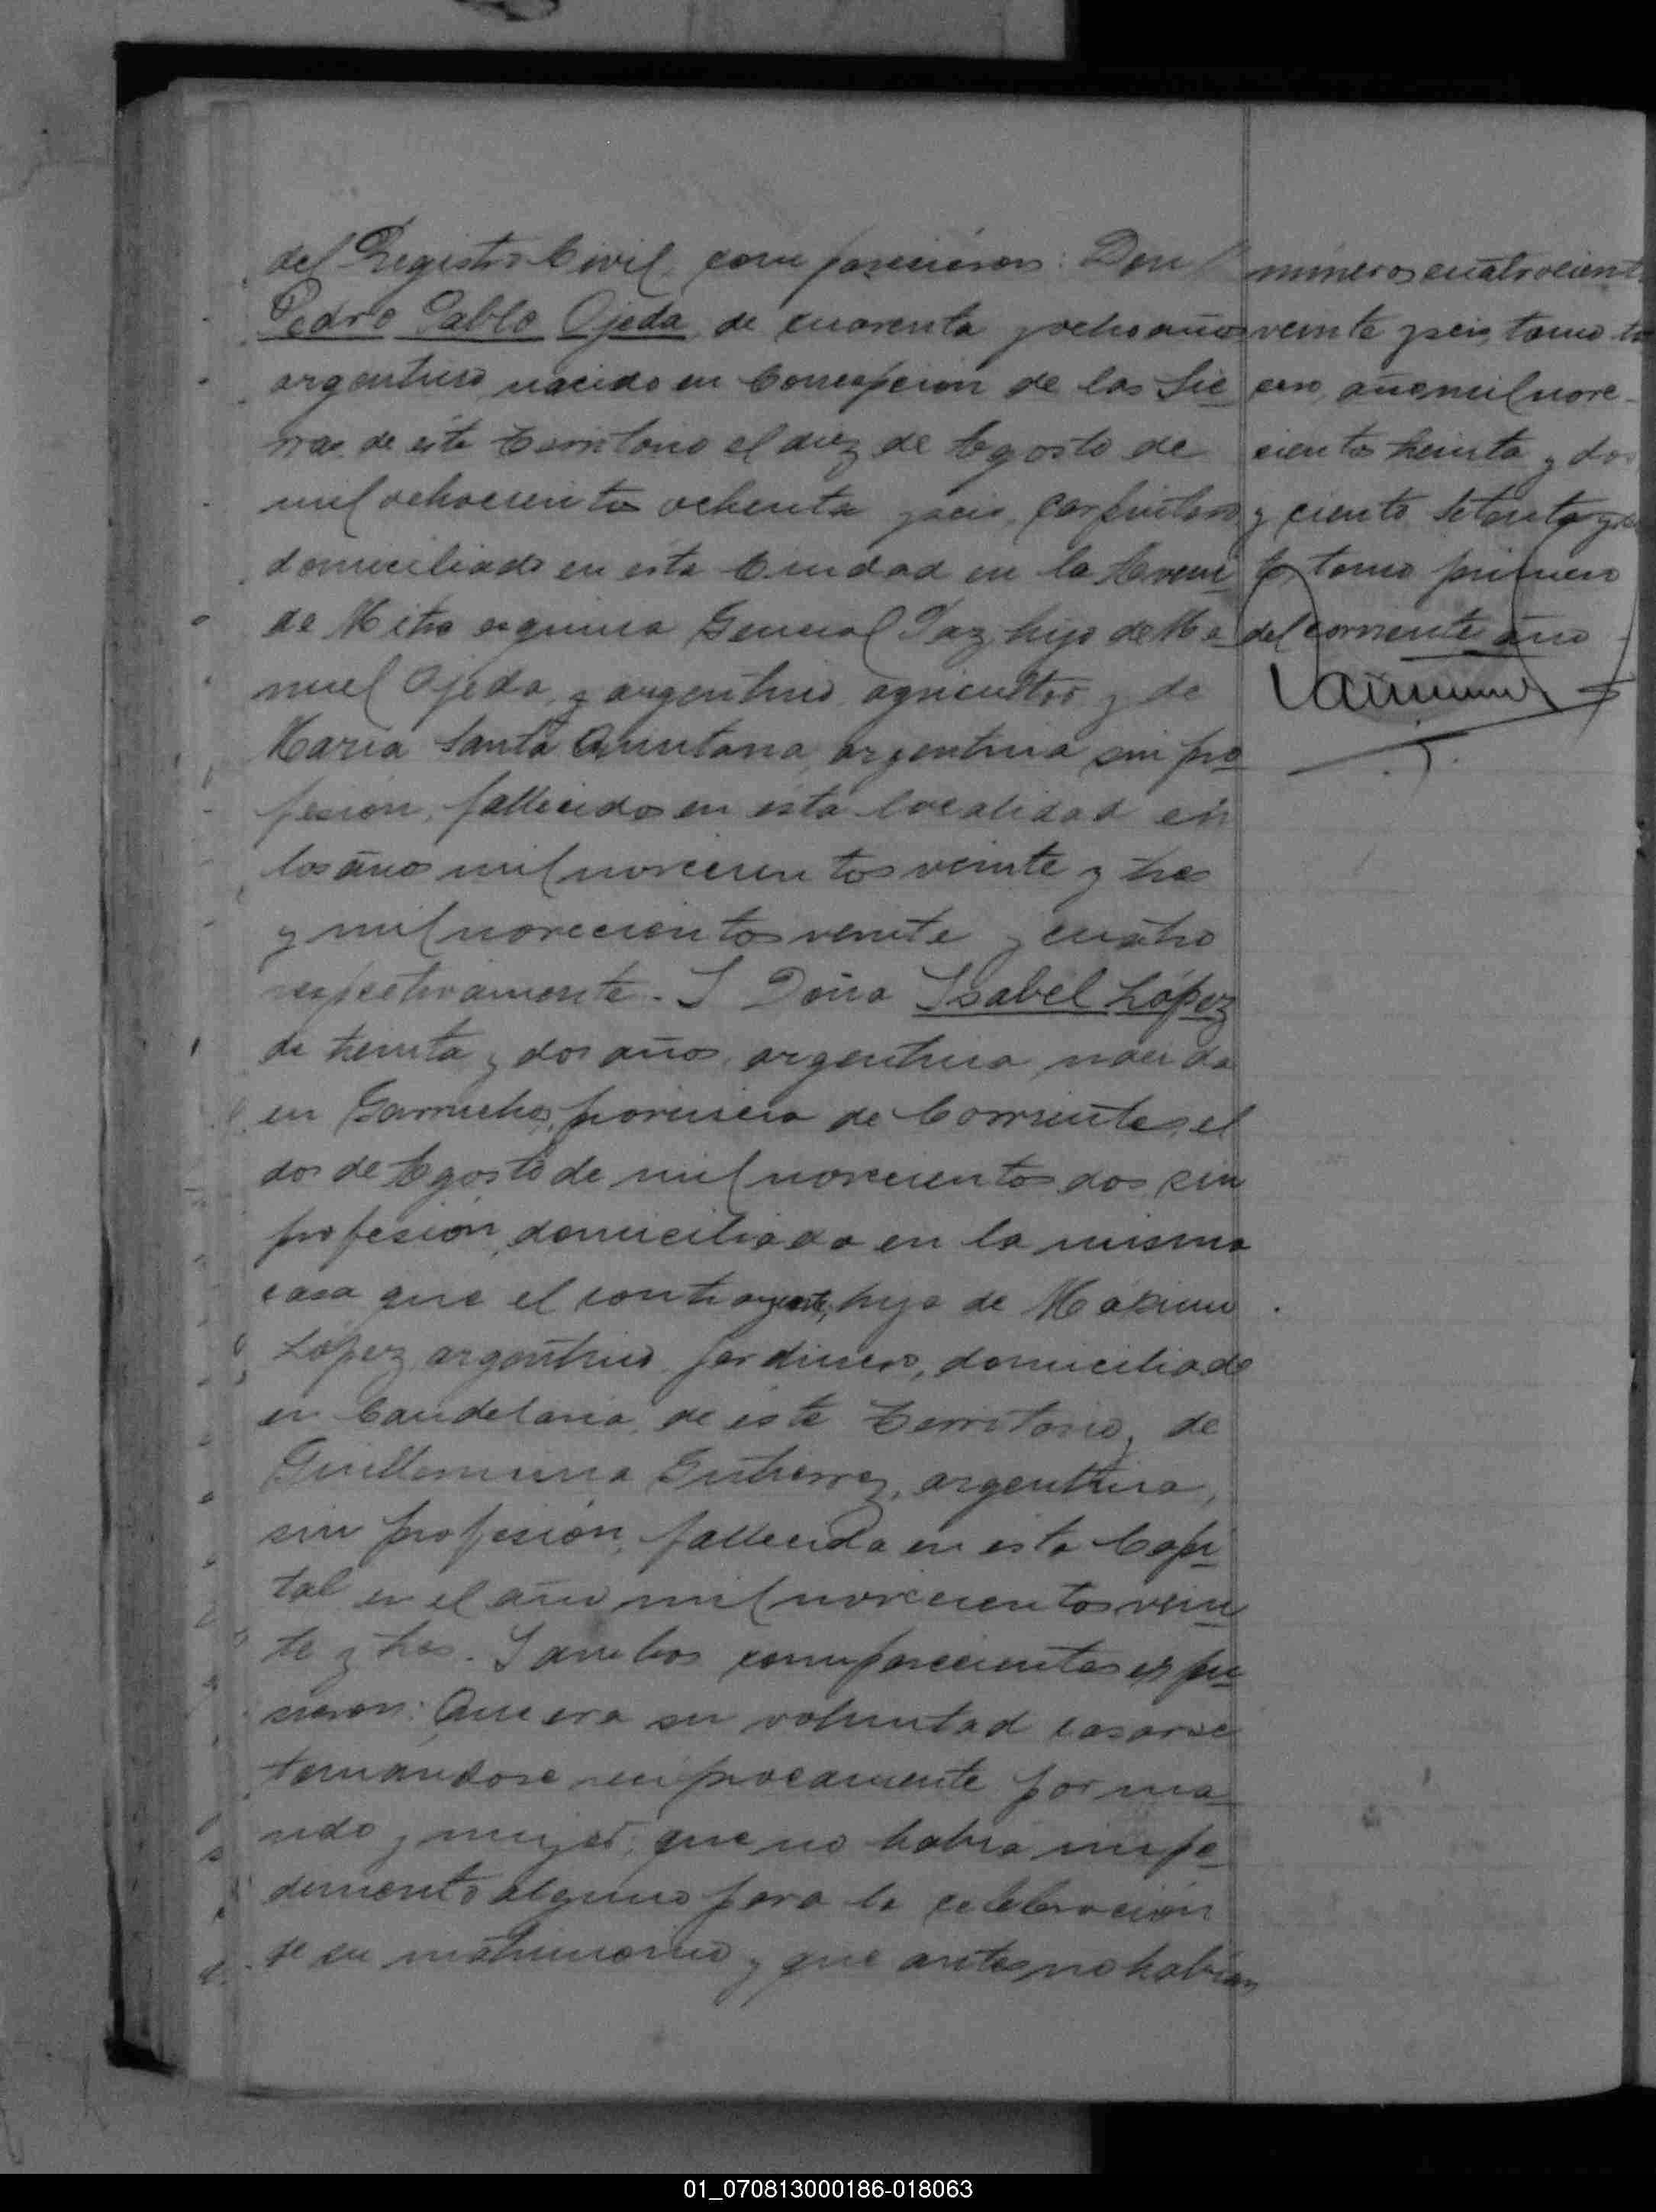 del Registro Civil, comparecieron: Don
Pedro Pablo Ojeda, de cuarenta y ocho años
argentino, nacido en Concepción de las Sie
rras de éste Territorio el diez de Agosto de
mil ochocientos ochenta y seis, carpintero
domiciliado en ésta Ciudad en la Aveni
da Mitre esquina General Paz, hijo de Ma
nuel Ojeda, argentino, agricultor y de
María Santa Quintana, argentina sin pro
fesión, fallecidos en ésta localidad en
los años mil novecientos veinte y tres
y mil novecientos veinte y cuatro
respectivamente. Y Doña Isabel López
de treinta y dos años, argentina, nacida
en Garruchos, provincia de Corrientes, el
dos de Agosto de mil novecientos dos, sin
profesión, domiciliada en la misma
casa que el contrayente, hija de Máximo
López, argentino, jardinero, domiciliado
en Candelaria, de éste Territorio y de
Guillermina Gutierrez, argentina,
sin profesión, fallecida en ésta Capi
tal en el año mil novecientos vein
te y tres. Y ambos comparecientes expu
sieron: Que era su voluntad casarse
tomandose reciprocamente por ma
rido y mujer; que no había impe
dimento alguno para la celebración
de su matrimonio y que antes no habían
números cuatrocient
veinte y seis, tomo te
cero, año mil nove-
cientos treinta y dos
y ciento setenta y
tomo primero
del corriente año
01_070813000186-018063